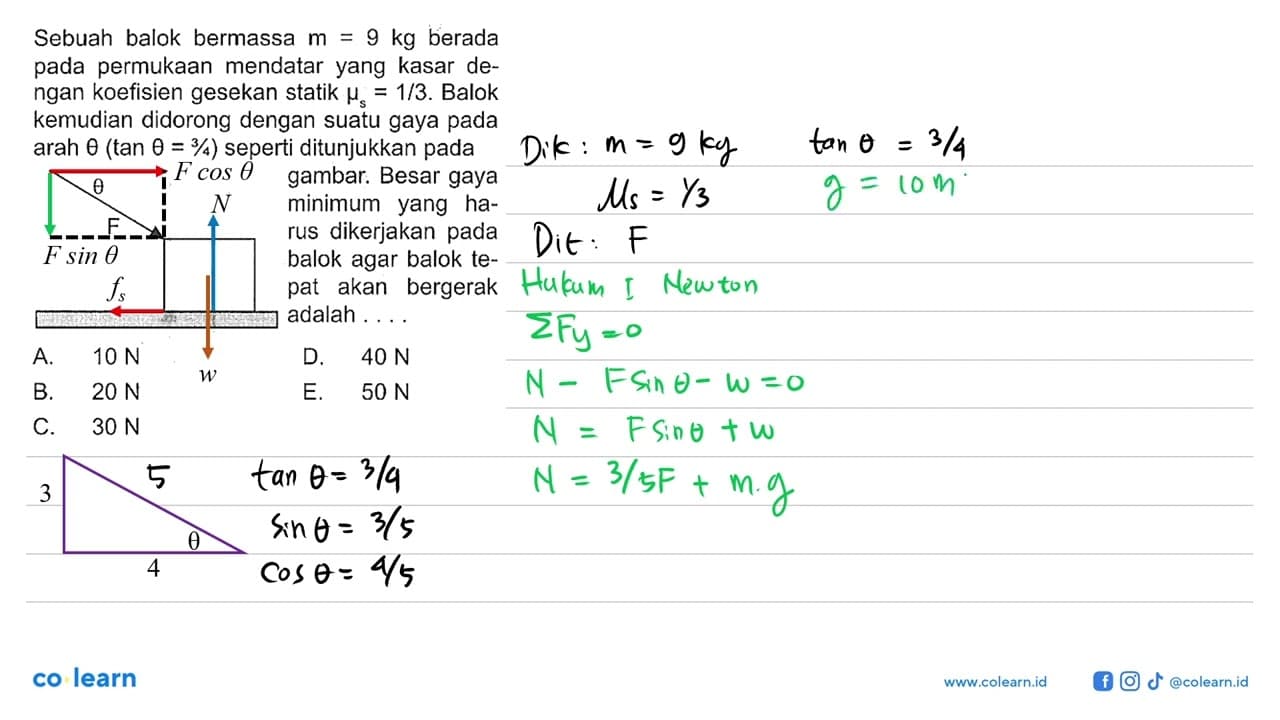 Sebuah balok bermassa m = 9 kg berada
pada permukaan mendatar yang kasar de-
ngan koefisien gesekan statik μs = 1/3. Balok
kemudian didorong dengan suatu gaya pada
arah θ (tan θ = ¾) seperti ditunjukkan pada
gambar. Besar gaya
minimum yang ha-
rus dikerjakan pada
balok agar balok te-
pat akan bergerak
adalah . . . .
F cos θ
θ
N
F
F sin θ
fs
w
A. 10 N
B. 20 N
C. 30 N
D. 40 N
E. 50 N
3
5
θ
4
tan θ = 3/4
sin θ = 3/5
cos θ = 4/5
Dik : m = 9 kg tan θ = 3/4
μs = 1/3 g = 10 m
Dit : F
Hukum I Newton
ΣFy = 0
N - F sin θ - w = 0
N = F sin θ + w
N = 3/5F + m.g
co learn
www.colearn.id
@colearn.id